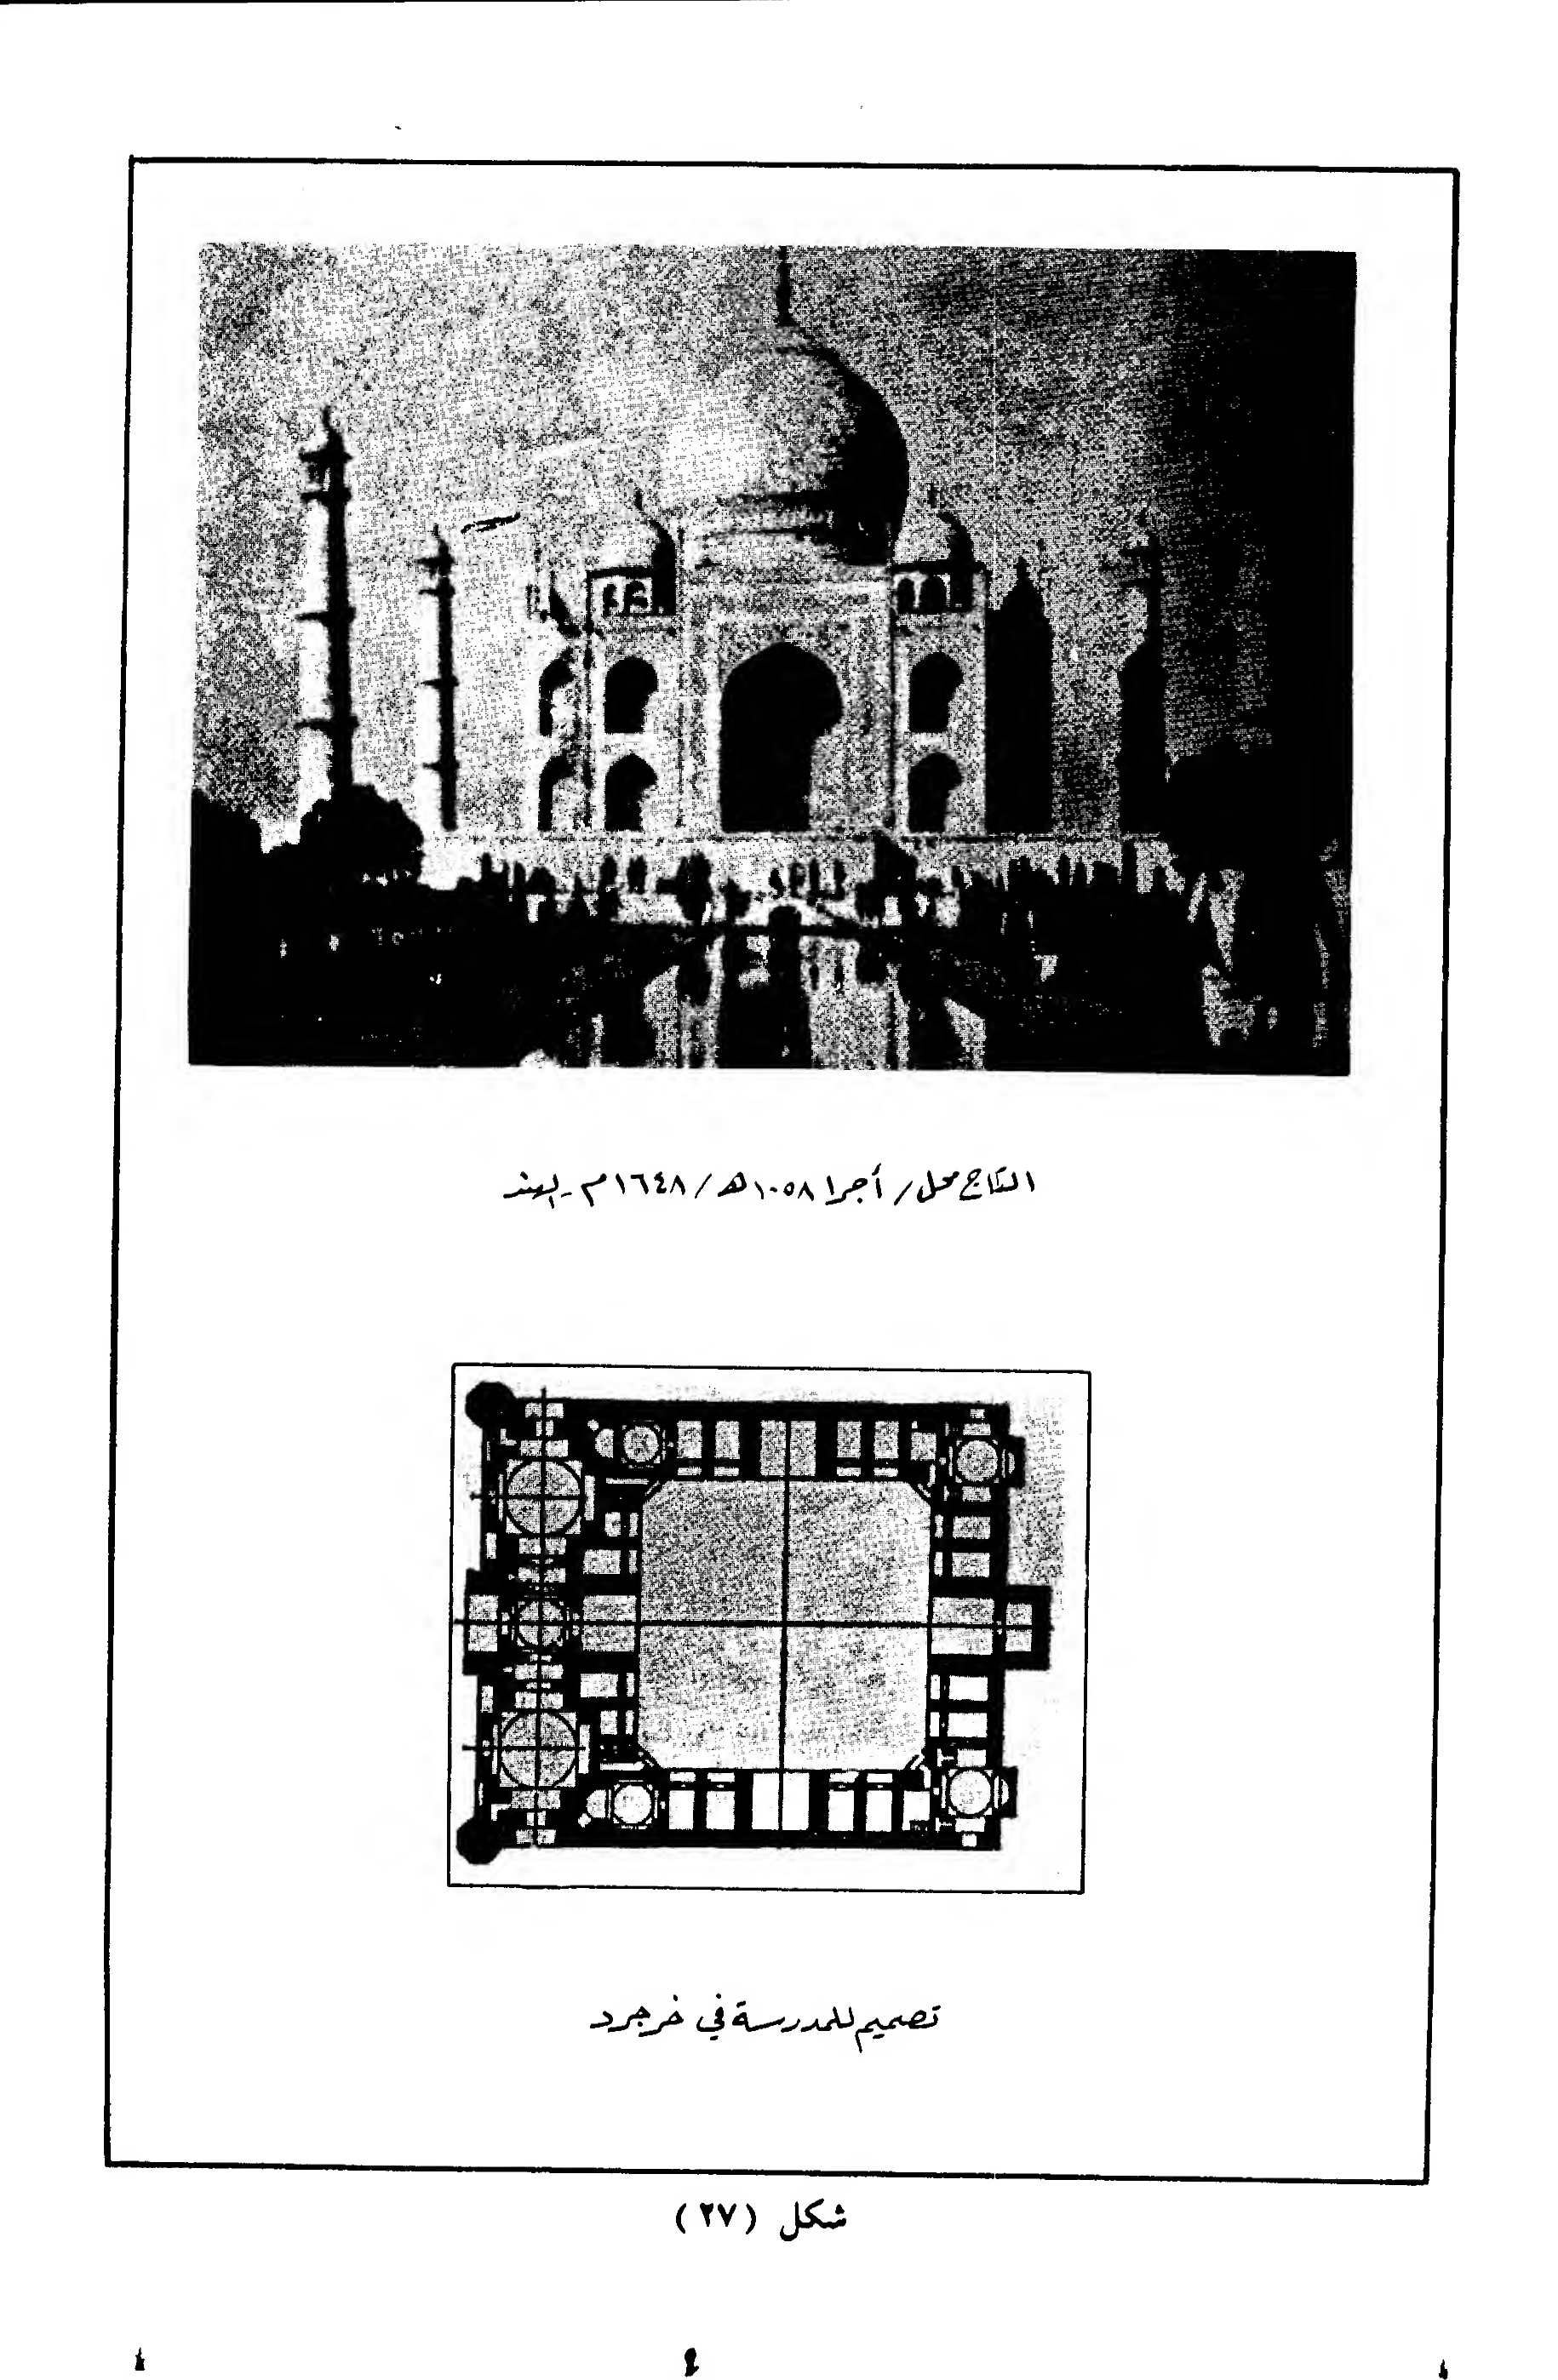 التاج محل / أجرا ١٠٥٨ هـ / ١٦٤٨ م - الهند
تصميم للمدرسة في خرجرد
شكل (٢٧)